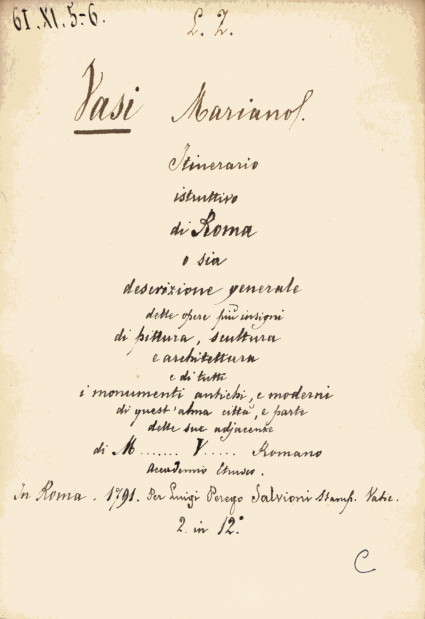 61.XI.5-6.
L. Z.
Vasi Mariano/.
Itinerario
istruttivo
di Roma
o sia
descrizione generale
delle opere più insigni
di pittura, scultura
e architettura
e di tutti
i monumenti antichi, e moderni
di quest'alma città, e parte
delle sue adjacente
di M....... V..... Romano
Accademico Etrusco.
In Roma. 1791. Per Luigi Perego Salvioni Stamp. Vatic.
2. in 12.°
C